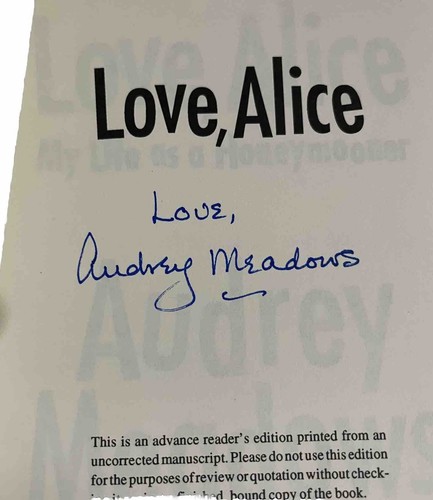 Love, Alice
Love,
Audrey Meadows
This is an advance reader's edition printed from an
uncorrected manuscript. Please do not use this edition
for the purposes of review or quotation without check-
bound copy of the book.
Love, Alice
My Life as a Honeymooner
Audrey